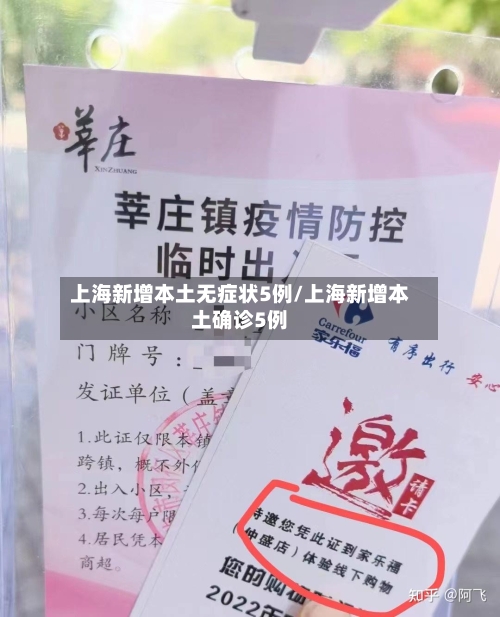 莘庄
XINZHUANG
莘庄镇疫情防控
临时出
上海新增本土无症状5例/上海新增本
土确诊5例
小区名称
门牌号：
发证单位（盖
1.此证仅限本镇
跨镇，概不外
2.出入小区，
3.每次每户限
4.居民凭本
商超。
Carrefour
家乐福
有序出行 安心
邀
请卡
特邀您凭此证到家乐福
（仲盛店）体验线下购物
您的购
2022年
知乎 @阿飞